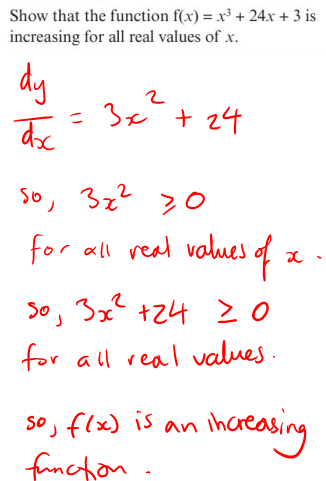 Show that the function f(x) = x³ + 24x + 3 is
increasing for all real values of x.
dy/dx = 3x² + 24
so, 3x² ≥ 0
for all real values of x.
so, 3x² + 24 ≥ 0
for all real values.
so, f(x) is an increasing
function.